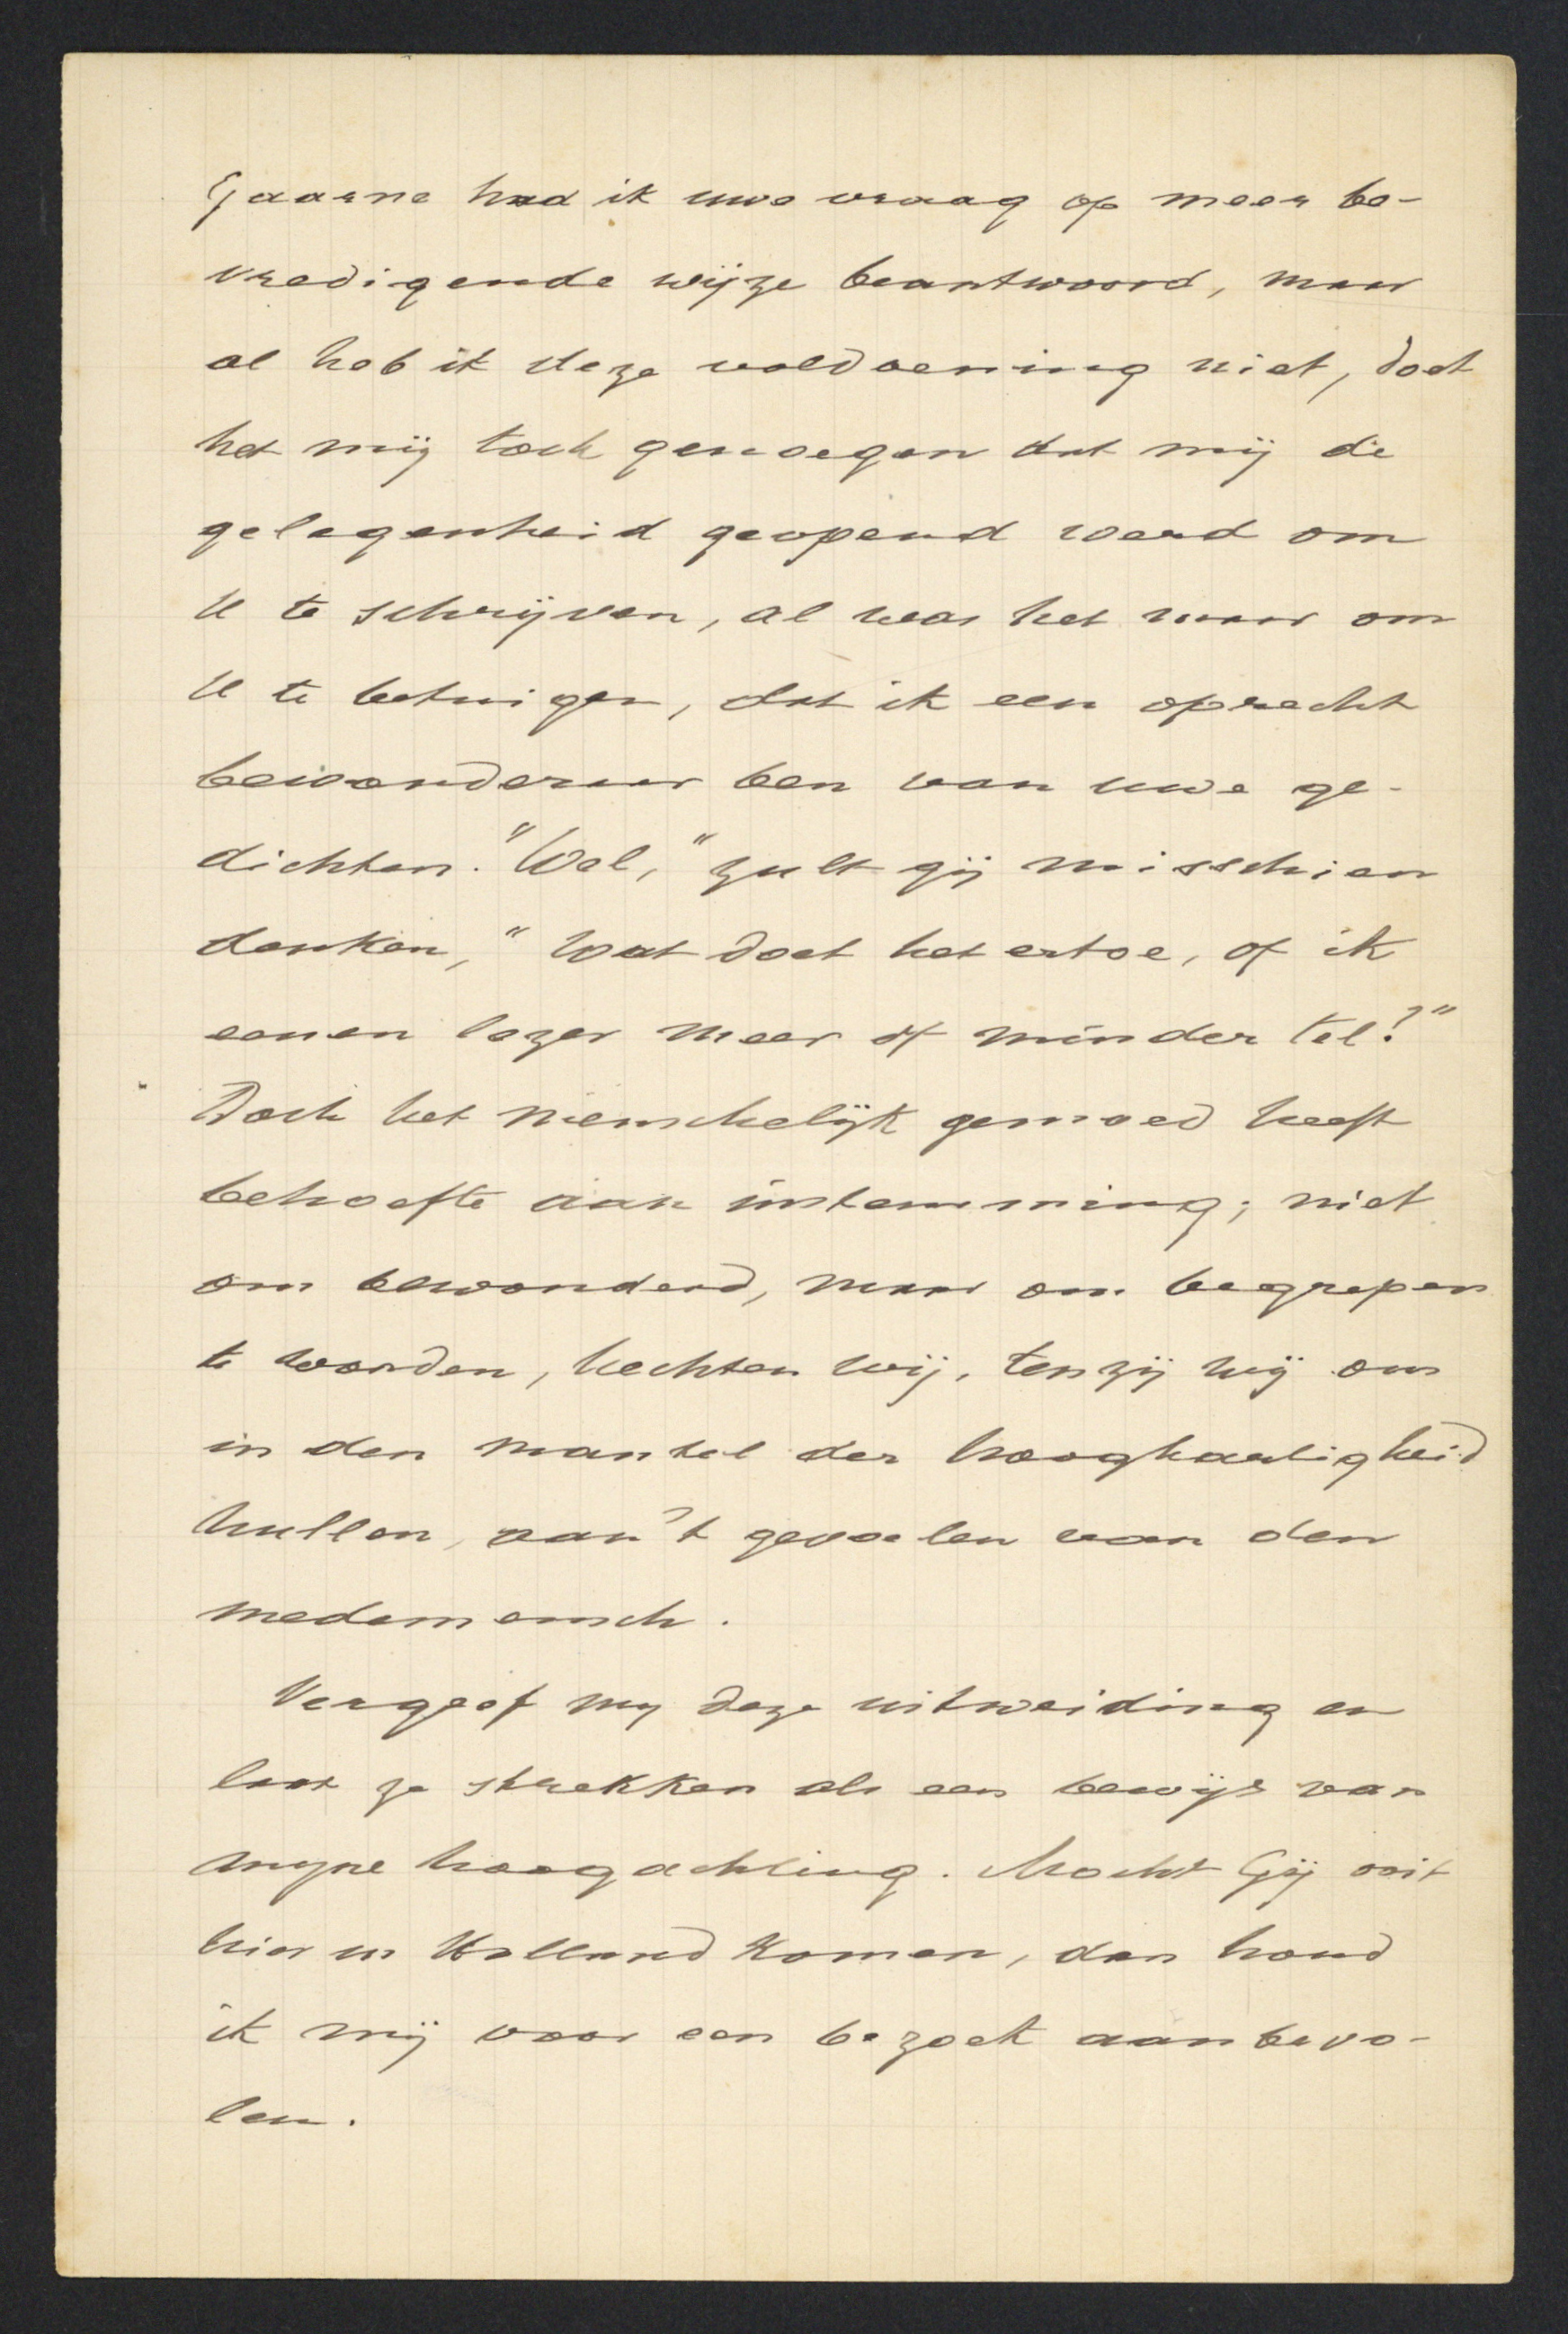 Gaarne had ik uwe vraag op meer be-
vredigende wijze beantwoord, maar
al heb ik deze voldoening niet, doet
het mij toch genoegen dat mij de
gelegenheid geopend werd om
U te schrijven, al was het maar om
U te betuigen, dat ik een oprecht
bewonderaar ben van uwe ge-
dichten. "Wel," zult gij misschien
denken, "wat doet het ertoe, of ik
eenen lezer meer of minder tel?"
Doch het menschelijk gemoed heeft
behoefte aan instemming; niet
om bewonderd, maar om begrepen
te worden, hechten wij, tenzij wij ons
in den mantel der hooghartigheid
hullen, aan 't gevoelen van den
medemensch.
Vergeef my deze uitweiding en
laat ze strekken als een bewijs van
myne hoogachting. Mocht Gij ooit
hier in Holland komen, dan houd
ik mij voor een bezoek aanbevo-
len.